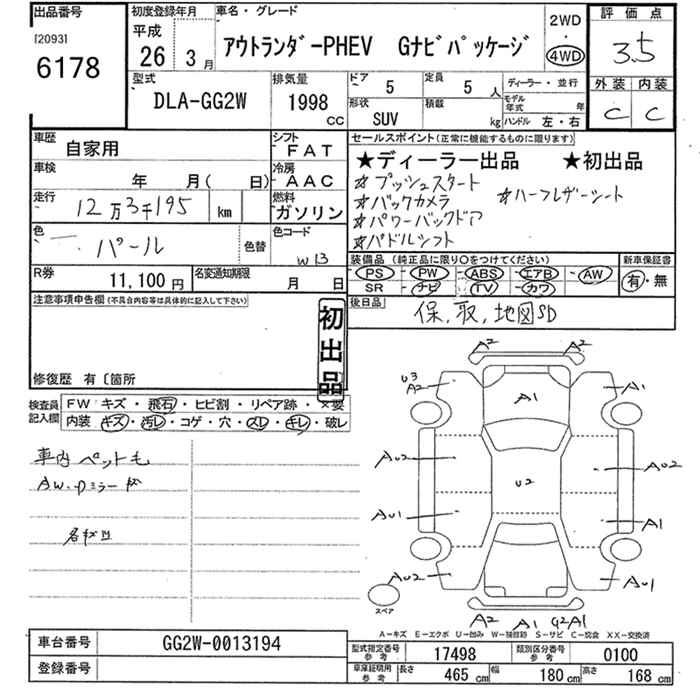 出品番号
[2093]
6178
初度登録年月
平成
26年 3月
車名・グレード
アウトランダ-PHEV Gナビパッケージ
2WD
・
4WD
評価点
3.5
外装 内装
C C
型式
DLA-GG2W
排気量
1998 CC
ドア 5
定員 5 人
形状 SUV
積載 kg
ディーラー・並行
モデル年式 年
ハンドル 左・右
車歴 自家用
シフト FAT
車検 年 月( 日)
冷房 AAC
走行 12万3千195 km
燃料 ガソリン
色 パール
色替
色コード W13
R券 11,100円
名変通知期限 月 日
セールスポイント(正常に機能するものに限ります)
★ディーラー出品 ★初出品
☆プッシュスタート
☆バックカメラ ☆ハーフレザーシート
☆パワーバックドア
☆パドルシフト
装備品(純正品に限り○をつけてください)
PS・PW・ABS・エアB・AW
SR・ナビ・TV・カワ
新車保証書
有・無
後日品
保,取,地図SD
注意事項申告欄(不具合内容等は具体的に記入して下さい)
初出品
修復歴 有〔箇所
検査員記入欄
FW キズ・飛石・ヒビ割・リペア跡・X要
内装 キズ・汚レ・コゲ・穴・スレ・キレ・破レ
車内ペット毛
AW.Dミラーキズ
A2 A2
U3
A2 A1 A1
AU2 U2 AU2
AU1 A1
AU2 AU1
スペア
A2 A1 G2A1
A-キズ E-エクボ U-凹み W-補修跡 S-サビ C-腐食 XX-交換済
車台番号 GG2W-0013194
登録番号
型式指定番号参考 17498
類別区分番号参考 0100
車庫証明用参考 長さ 465cm 幅 180cm 高さ 168cm